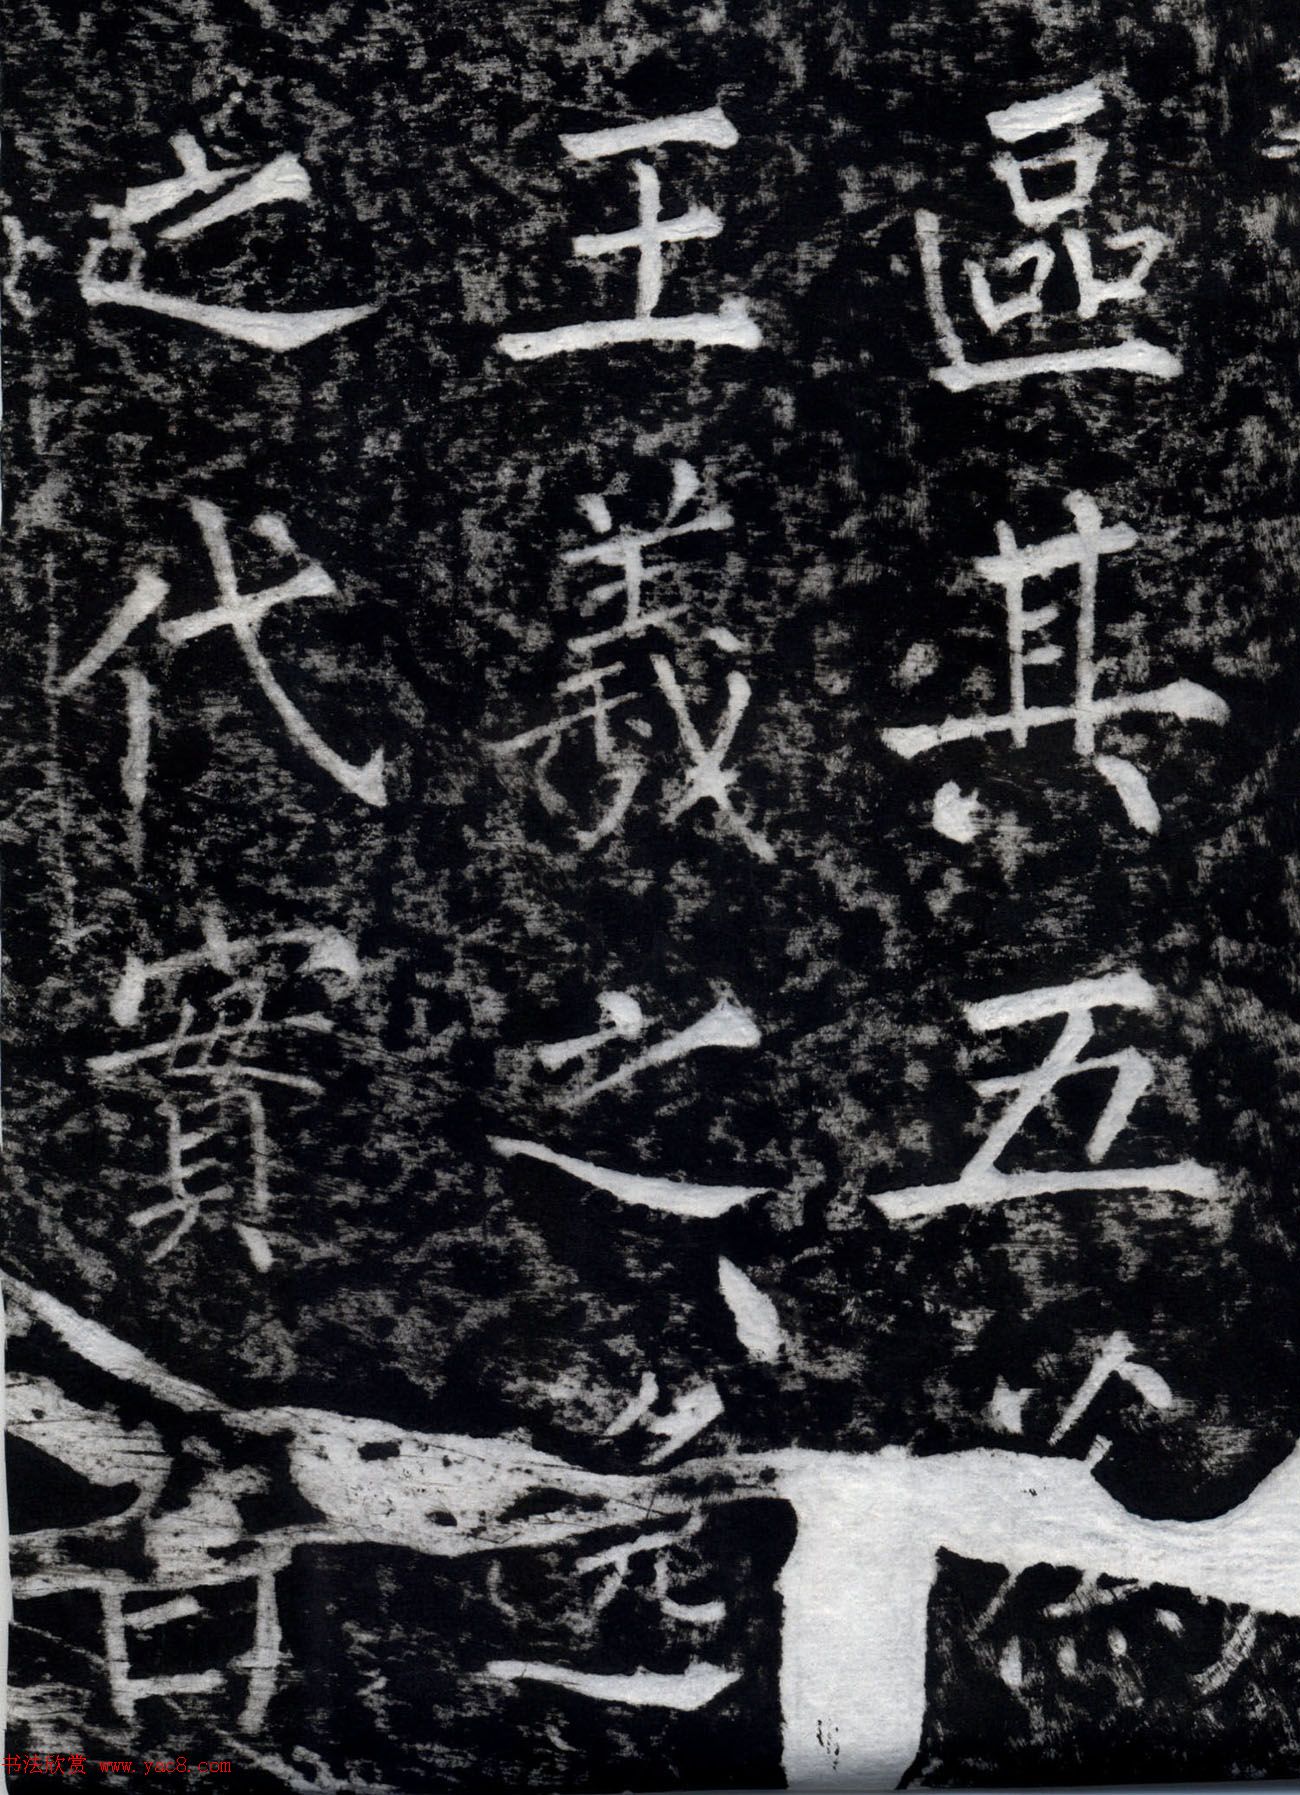 區其五
王義之
之代實
书法欣赏 www.yac8.com